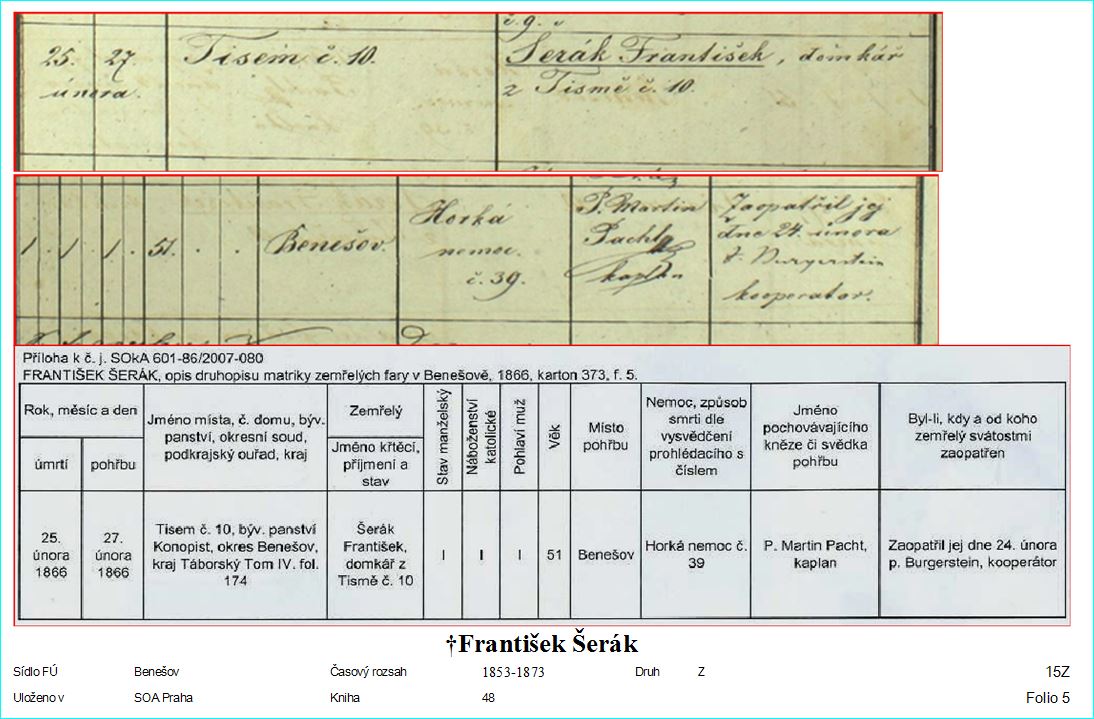 č. 9.
25. 27.
února.
Tisem č. 10.
Šerák František, domkář
z Tismě č. 10.
1 1 1 51. . .
Benešov
Horká
nemoc.
č. 39.
P. Martin
Pacht
kaplan
Zaopatřil jej
dne 24. února
P. Burgerstein
kooperator.
Příloha k č. j. SOkA 601-86/2007-080
FRANTIŠEK ŠERÁK, opis druhopisu matriky zemřelých fary v Benešově, 1866, karton 373, f. 5.
Rok, měsíc a den
úmrtí
pohřbu
Jméno místa, č. domu, býv.
panství, okresní soud,
podkrajský ouřad, kraj
Zemřelý
Jméno křtěcí,
příjmení a
stav
Stav manželský
Náboženství
katolické
Pohlaví muž
Věk
Místo
pohřbu
Nemoc, způsob
smrti dle
vysvědčení
prohlédacího s
číslem
Jméno
pochovávajícího
kněze či svědka
pohřbu
Byl-li, kdy a od koho
zemřelý svátostmi
zaopatřen
25.
února
1866
27.
února
1866
Tisem č. 10, býv. panství
Konopist, okres Benešov,
kraj Táborský Tom IV. fol.
174
Šerák
František,
domkář z
Tismě č. 10
I
I
I
51
Benešov
Horká nemoc č.
39
P. Martin Pacht,
kaplan
Zaopatřil jej dne 24. února
p. Burgerstein, kooperátor
†František Šerák
Sídlo FÚ Benešov Časový rozsah 1853-1873 Druh Z 15Z
Uloženo v SOA Praha Kniha 48 Folio 5